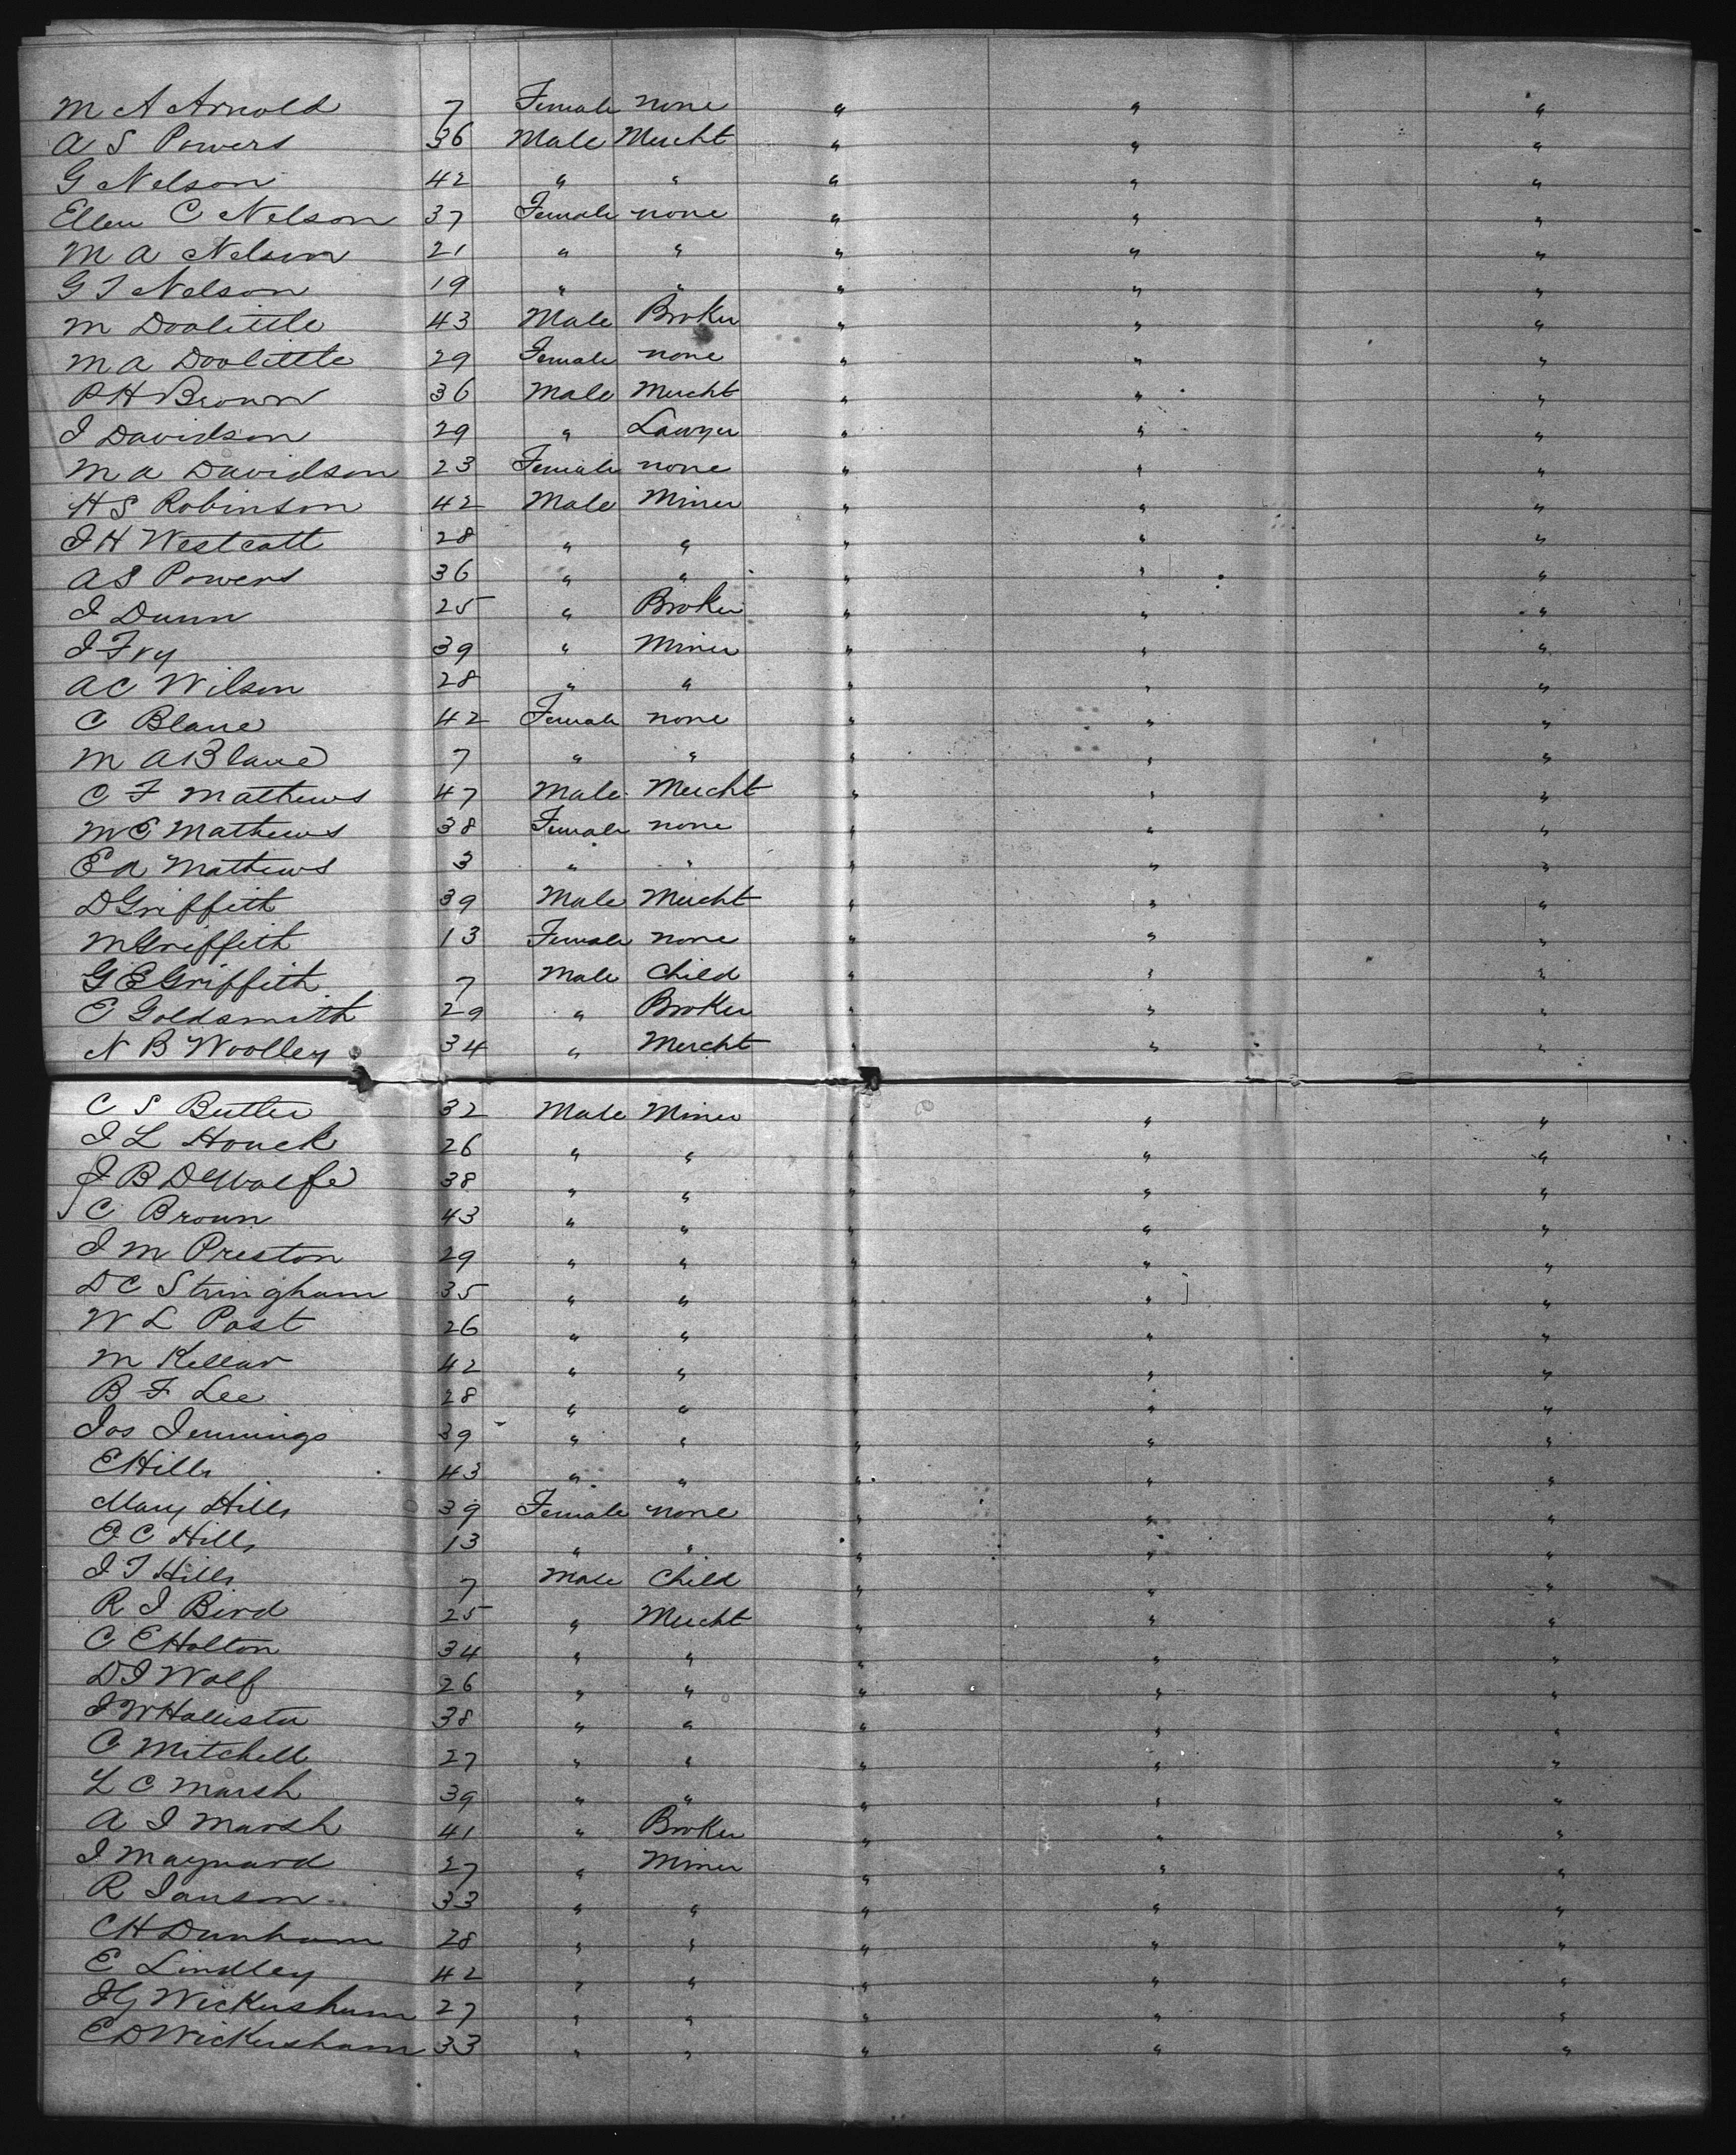 M A Arnold 7 Female none " " "
A S Powers 36 Male Mercht " " "
G Nelson 42 " " " " "
Ellen C Nelson 37 Female none " " "
M A Nelson 21 " " " " "
G T Nelson 19 " " " " "
M Doolittle 43 Male Broker " " "
M A Doolittle 29 Female none " " "
P H Brown 36 Male Mercht " " "
J Davidson 29 " Lawyer " " "
M A Davidson 23 Female none " " "
H S Robinson 42 Male Miner " " "
J H Westcott 28 " " " " "
A S Powers 36 " " " " "
J Dunn 25 " Broker " " "
J Fry 39 " Miner " " "
A C Wilson 28 " " " " "
C Blane 42 Female none " " "
M A Blane 7 " " " " "
C F Mathews 47 Male Mercht " " "
M E Mathews 38 Female none " " "
E A Mathews 3 " " " " "
D Griffith 39 Male Mercht " " "
M Griffith 13 Female none " " "
G E Griffith 7 Male Child " " "
E Goldsmith 29 " Broker " " "
N B Woolley 34 " Mercht " " "
C S Butler 32 Male Miner " " "
J L Houck 26 " " " " "
J B DeWolfe 38 " " " " "
C Brown 43 " " " " "
J M Preston 29 " " " " "
D C Stringham 35 " " " " "
W L Post 26 " " " " "
M Kellar 42 " " " " "
B F Lee 28 " " " " "
Jos Jennings 39 " " " " "
E Hills 43 " " " " "
Mary Hills 39 Female none " " "
E C Hills 13 " " " " "
J T Hills 7 Male Child " " "
R J Bird 25 " Mercht " " "
C E Holton 34 " " " " "
D J Wolf 26 " " " " "
J W Hollister 38 " " " " "
C Mitchell 27 " " " " "
L C Marsh 39 " " " " "
A J Marsh 41 " Broker " " "
J Maynard 27 " Miner " " "
R Janson 33 " " " " "
C H Dunham 28 " " " " "
E Lindley 42 " " " " "
J G Wickersham 27 " " " " "
E D Wickersham 33 " " " " "